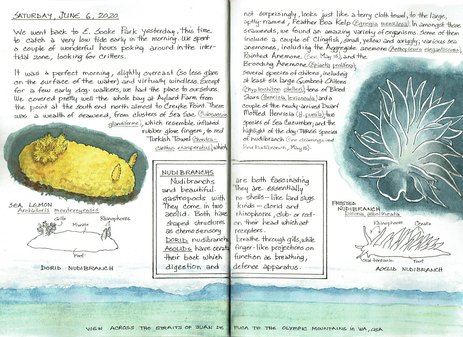 SATURDAY, JUNE 6, 2020
We went back to E. Sooke Park yesterday, this time
to catch a very low tide early in the morning. We spent
a couple of wonderful hours poking around in the inter-
tidal zone, looking for critters.
It was a perfect morning, slightly overcast (so less glare
on the surface of the water) and virtually windless. Except
for a few early dog-walkers, we had the place to ourselves.
We covered pretty well the whole bay at Aylard Farm from
the point at the south end almost to Creyke Point. There
was a wealth of seaweed, from clusters of Sea Sac
which resemble inflated
rubber glove fingers, to red
Turkish Towel
which,
SEA LEMON
Gills
Mantle
Rhinophores
Foot
DORID NUDIBRANCH
NUDIBRANCHS
Nudibranchs
and beautiful
gastropods with
They come in two
aeolid. Both have
shaped structures
as chemosensory
DORID nudibranchs
AEOLIDS have cerata
their back which
digestion and
not surprisingly, looks just like a terry cloth towel, to the large,
aptly-named, Feather Boa Kelp (Egregia menziesii). In amongst those
seaweeds, we found an amazing variety of organisms. Some of them
include a couple of Clingfish, small, yellow and wriggly; various sea
anemones, including the Aggregate Anemone (Anthopleura elegantissima)
Painted Anemone, (See May 18) and the
Brooding Anemone (Epiactis prolifera);
several species of chitons, including
at least six large Gumboot Chitons
(Cryptochiton stelleri); tons of Blood
Stars (Henricia leviuscula) and
a couple of the newly-arrived Dwarf
Mottled Henricia (H. pumila); two
species of Sea Cucumber; and the
highlight of the day- THREE species
of nudibranch (see drawings and
Nudibranch, May 18).
are both fascinating
They are essentially
no shells - like land slugs.
kinds - dorid and
rhinophores, club- or rod-
on their head which act
receptors.
breathe through gills, while
finger-like projections on
function as breathing,
defense apparatus.
FROSTED
NUDIBRANCH
Dirona albolineata
Rhinophores
Cerata
Oral tentacle
Foot
AEOLID NUDIBRANCH
VIEW ACROSS THE STRAITS OF JUAN DE FUCA TO THE OLYMPIC MOUNTAINS IN WA, USA